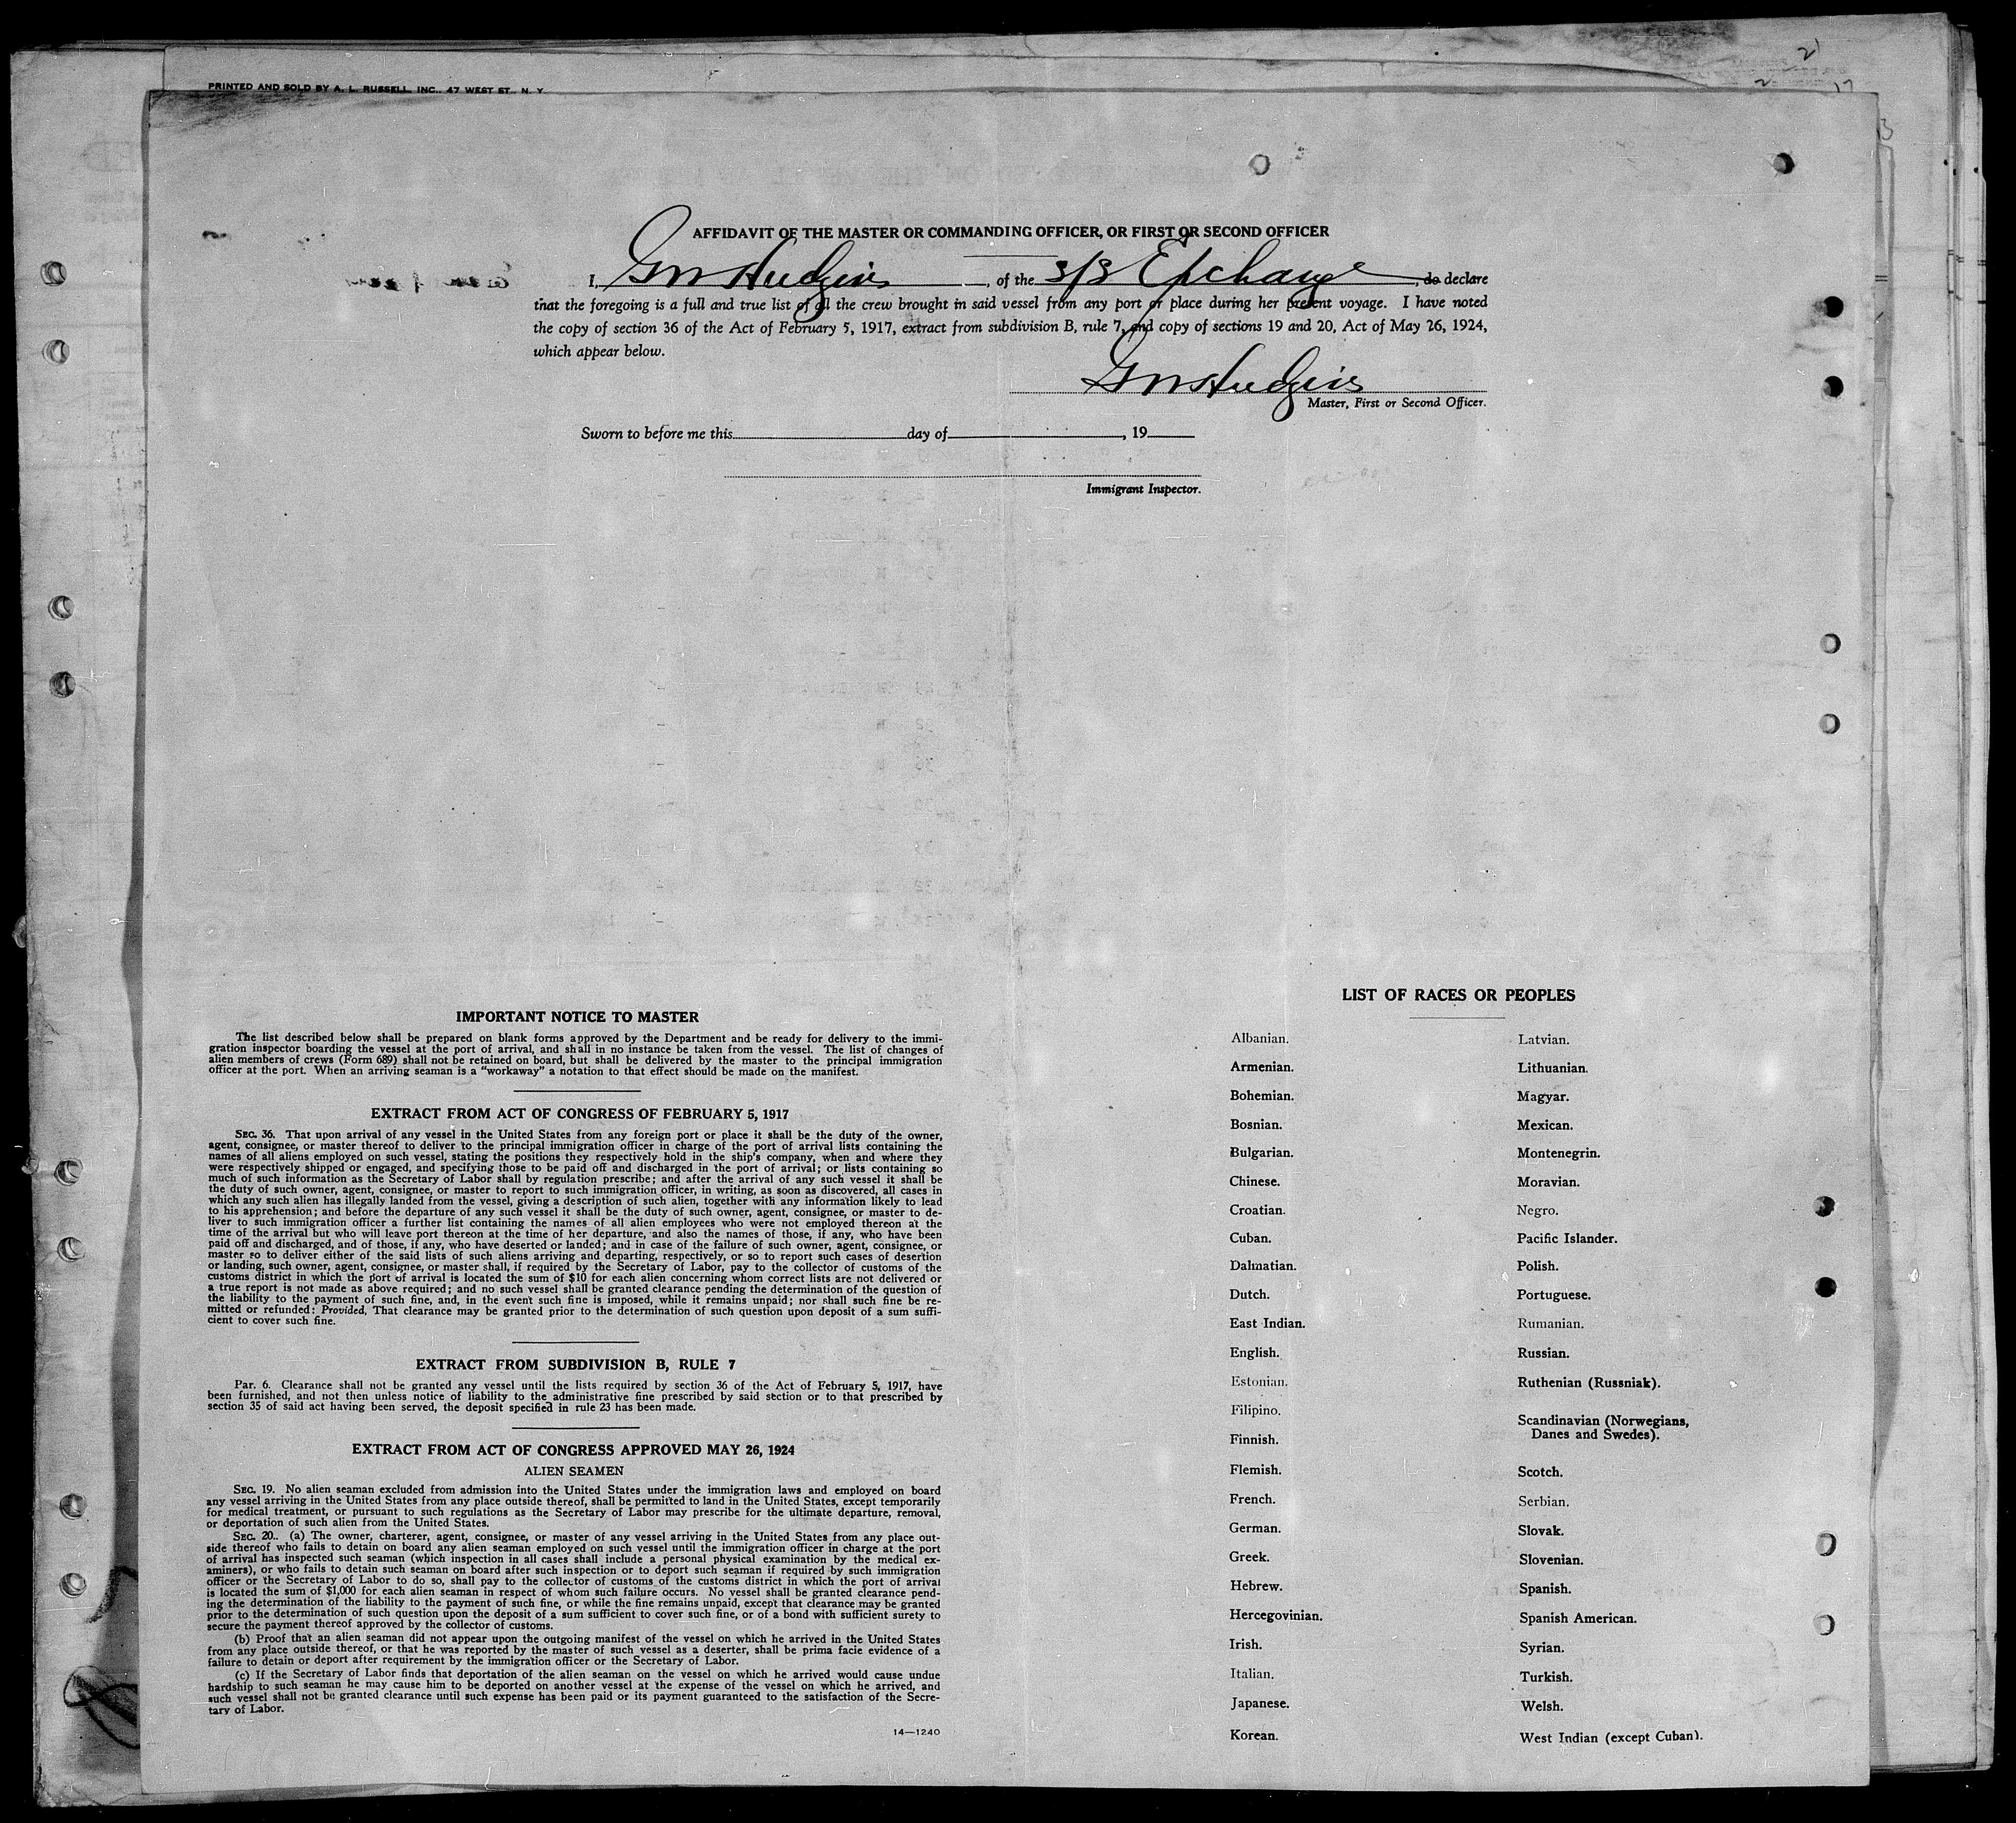 PRINTED AND SOLD BY A. L. RUSSELL, INC., 47 WEST ST., N. Y.
AFFIDAVIT OF THE MASTER OR COMMANDING OFFICER, OR FIRST OR SECOND OFFICER
I, GW Hudgins, of the S/S Exchange, do declare
that the foregoing is a full and true list of all the crew brought in said vessel from any port or place during her present voyage. I have noted
the copy of section 36 of the Act of February 5, 1917, extract from subdivision B, rule 7, and copy of sections 19 and 20, Act of May 26, 1924,
which appear below.
GW Hudgins
Master, First or Second Officer.
Sworn to before me this day of , 19
Immigrant Inspector.
IMPORTANT NOTICE TO MASTER
The list described below shall be prepared on blank forms approved by the Department and be ready for delivery to the immi-
gration inspector boarding the vessel at the port of arrival, and shall in no instance be taken from the vessel. The list of changes of
alien members of crews (Form 689) shall not be retained on board, but shall be delivered by the master to the principal immigration
officer at the port. When an arriving seaman is a "workaway" a notation to that effect should be made on the manifest.
EXTRACT FROM ACT OF CONGRESS OF FEBRUARY 5, 1917
SEC. 36. That upon arrival of any vessel in the United States from any foreign port or place it shall be the duty of the owner,
agent, consignee, or master thereof to deliver to the principal immigration officer in charge of the port of arrival lists containing the
names of all aliens employed on such vessel, stating the positions they respectively hold in the ship's company, when and where they
were respectively shipped or engaged, and specifying those to be paid off and discharged in the port of arrival; or lists containing so
much of such information as the Secretary of Labor shall by regulation prescribe; and after the arrival of any such vessel it shall be
the duty of such owner, agent, consignee, or master to report to such immigration officer, in writing, as soon as discovered, all cases in
which any such alien has illegally landed from the vessel, giving a description of such alien, together with any information likely to lead
to his apprehension; and before the departure of any such vessel it shall be the duty of such owner, agent, consignee, or master to de-
liver to such immigration officer a further list containing the names of all alien employees who were not employed thereon at the
time of the arrival but who will leave port thereon at the time of her departure, and also the names of those, if any, who have been
paid off and discharged, and of those, if any, who have deserted or landed; and in case of the failure of such owner, agent, consignee, or
master so to deliver either of the said lists of such aliens arriving and departing, respectively, or so to report such cases of desertion
or landing, such owner, agent, consignee, or master shall, if required by the Secretary of Labor, pay to the collector of customs of the
customs district in which the port of arrival is located the sum of $10 for each alien concerning whom correct lists are not delivered or
a true report is not made as above required; and no such vessel shall be granted clearance pending the determination of the question of
the liability to the payment of such fine, and, in the event such fine is imposed, while it remains unpaid; nor shall such fine be re-
mitted or refunded: Provided, That clearance may be granted prior to the determination of such question upon deposit of a sum suffi-
cient to cover such fine.
EXTRACT FROM SUBDIVISION B, RULE 7
Par. 6. Clearance shall not be granted any vessel until the lists required by section 36 of the Act of February 5, 1917, have
been furnished, and not then unless notice of liability to the administrative fine prescribed by said section or to that prescribed by
section 35 of said act having been served, the deposit specified in rule 23 has been made.
EXTRACT FROM ACT OF CONGRESS APPROVED MAY 26, 1924
ALIEN SEAMEN
SEC. 19. No alien seaman excluded from admission into the United States under the immigration laws and employed on board
any vessel arriving in the United States from any place outside thereof, shall be permitted to land in the United States, except temporarily
for medical treatment, or pursuant to such regulations as the Secretary of Labor may prescribe for the ultimate departure, removal,
or deportation of such alien from the United States.
SEC. 20.. (a) The owner, charterer, agent, consignee, or master of any vessel arriving in the United States from any place out-
side thereof who fails to detain on board any alien seaman employed on such vessel until the immigration officer in charge at the port
of arrival has inspected such seaman (which inspection in all cases shall include a personal physical examination by the medical ex-
aminers), or who fails to detain such seaman on board after such inspection or to deport such seaman if required by such immigration
officer or the Secretary of Labor to do so, shall pay to the collector of customs of the customs district in which the port of arrival
is located the sum of $1,000 for each alien seaman in respect of whom such failure occurs. No vessel shall be granted clearance pend-
ing the determination of the liability to the payment of such fine, or while the fine remains unpaid, except that clearance may be granted
prior to the determination of such question upon the deposit of a sum sufficient to cover such fine, or of a bond with sufficient surety to
secure the payment thereof approved by the collector of customs.
(b) Proof that an alien seaman did not appear upon the outgoing manifest of the vessel on which he arrived in the United States
from any place outside thereof, or that he was reported by the master of such vessel as a deserter, shall be prima facie evidence of a
failure to detain or deport after requirement by the immigration officer or the Secretary of Labor.
(c) If the Secretary of Labor finds that deportation of the alien seaman on the vessel on which he arrived would cause undue
hardship to such seaman he may cause him to be deported on another vessel at the expense of the vessel on which he arrived, and
such vessel shall not be granted clearance until such expense has been paid or its payment guaranteed to the satisfaction of the Secre-
tary of Labor.
14—1240
LIST OF RACES OR PEOPLES
Albanian.
Armenian.
Bohemian.
Bosnian.
Bulgarian.
Chinese.
Croatian.
Cuban.
Dalmatian.
Dutch.
East Indian.
English.
Estonian.
Filipino.
Finnish.
Flemish.
French.
German.
Greek.
Hebrew.
Hercegovinian.
Irish.
Italian.
Japanese.
Korean.
Latvian.
Lithuanian.
Magyar.
Mexican.
Montenegrin.
Moravian.
Negro.
Pacific Islander.
Polish.
Portuguese.
Rumanian.
Russian.
Ruthenian (Russniak).
Scandinavian (Norwegians,
Danes and Swedes).
Scotch.
Serbian.
Slovak.
Slovenian.
Spanish.
Spanish American.
Syrian.
Turkish.
Welsh.
West Indian (except Cuban).